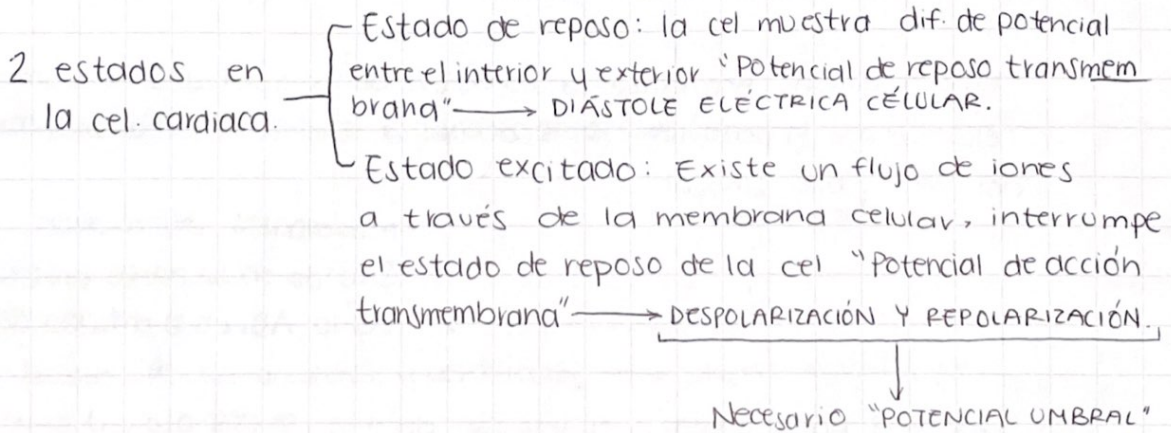 2 estados en
la cel. cardiaca.
Estado de reposo: la cel muestra dif. de potencial
entre el interior y exterior "Potencial de reposo transmem
brana" → DIÁSTOLE ELÉCTRICA CÉLULAR.
Estado excitado: Existe un flujo de iones
a través de la membrana célular, interrumpe
el estado de reposo de la cel "Potencial de acción
transmembrana" → DESPOLARIZACIÓN Y REPOLARIZACIÓN.
Necesario "POTENCIAL UMBRAL"